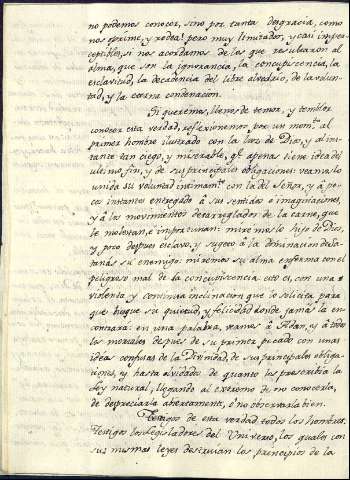 no podemos conocer, sino por tanta desgracia, como
nos oprime, y rodea! pero muy limitados, y casi imper
ceptibles, si nos acordamos de los que resultaron al
alma, que son la ignorancia, la concupiscencia, la
esclavitud, la decadencia del libre alvedrio, de la volun-
tad, y la eterna condenacion.
Si queremos, llenos de temor, y temblor
conocer esta verdad, reflexionemos por un mom.to al
primer hombre ilustrado con la luz de Dios, y al ins
tante tan ciego, y miserable, q.e apenas tiene idea del
ultimo fin, y de sus principales obligaciones: veamoslo
unida su voluntad intimam.te con la del Señor, y á po
cos instantes entregado á sus sentidos e imaginaciones,
y á los movimientos desarreglados de la carne, que
le molestan, e importunan: miremoslo hijo de Dios,
y poco despues esclavo, y sugeto á la dominacion de Sa
tanás su enemigo: miremos su alma enferma con el
peligroso mal de la concupiscencia esto es, con una
violenta y continua inclinacion que le solicita para
que busque su quietud, y felicidad donde jamas la en
contrará: en una palabra, veamos á Adan, y á todos
los mortales despues de su primer pecado con unas
ideas confusas de la Divinidad, de sus principales obliga
ciones, y hasta olvidados de quanto les prescribia la
Ley natural, llegando al extremo de no conocerla,
de despreciarla abiertamente, ó no observarla bien.
Testigos de esta verdad todos los hombres.
Testigos los Legisladores del Universo, los quales con
sus mismas leyes destruian los principios de la